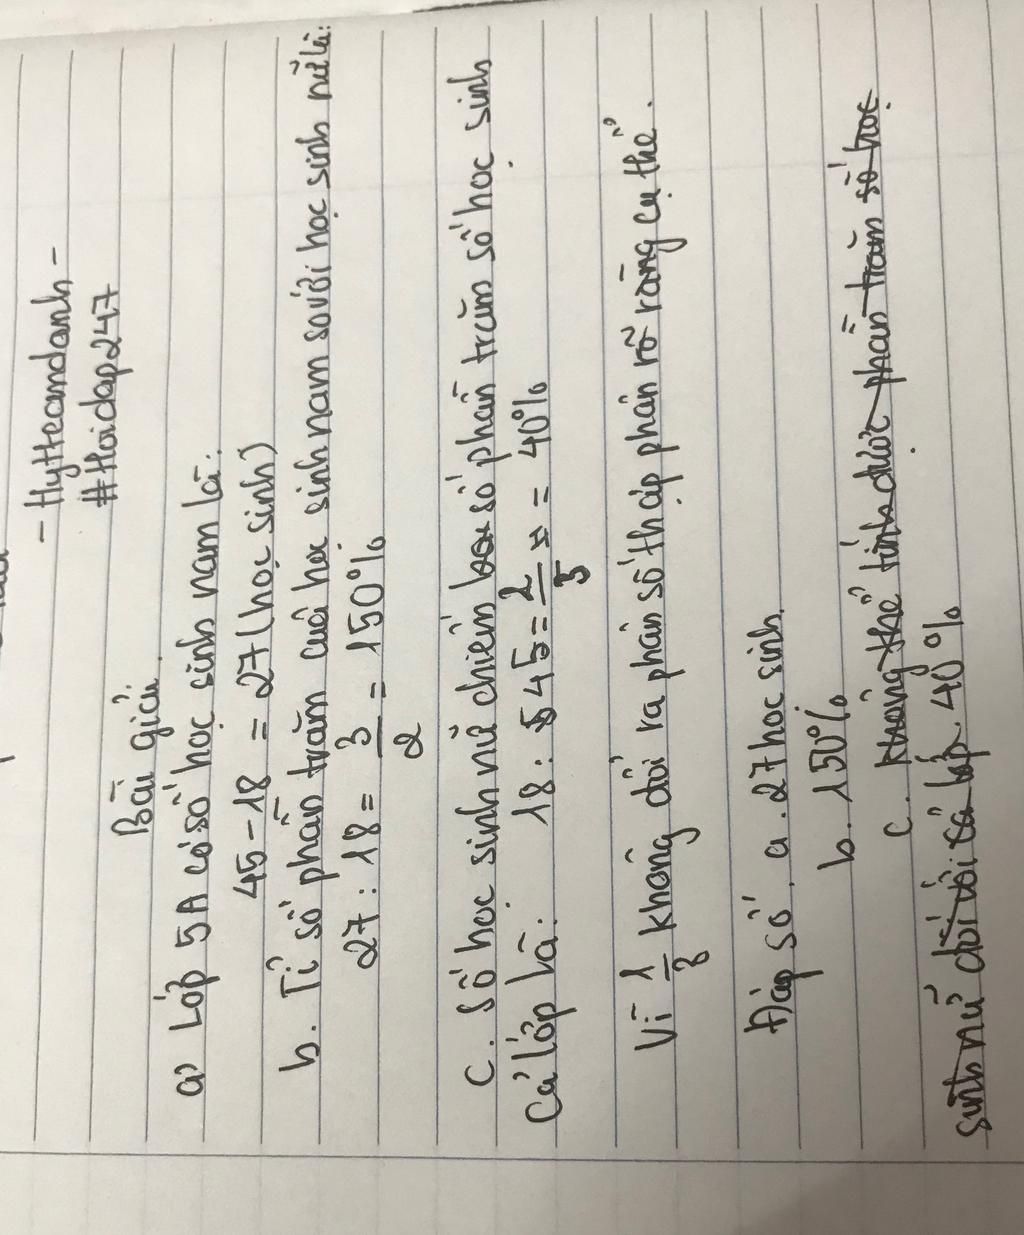 - Hytteamdanh -
#Hoidap247
Bài giải
a) Lớp 5A có số học sinh nam là:
45 - 18 = 27 (học sinh)
b. Tỉ số phần trăm của học sinh nam so với học sinh nữ là:
27 : 18 = 3/2 = 150%
c. Số học sinh nữ chiếm số phần trăm số học sinh
Cả lớp là: 18 : 45 = 2/5 = = 40%
Vì 1/3 không đổi ra phân số thập phân rõ ràng cụ thể.
Đáp số. a. 27 học sinh.
b. 150%
c. không thể tính được phần trăm số học
sinh nữ đối với cả lớp. 40%